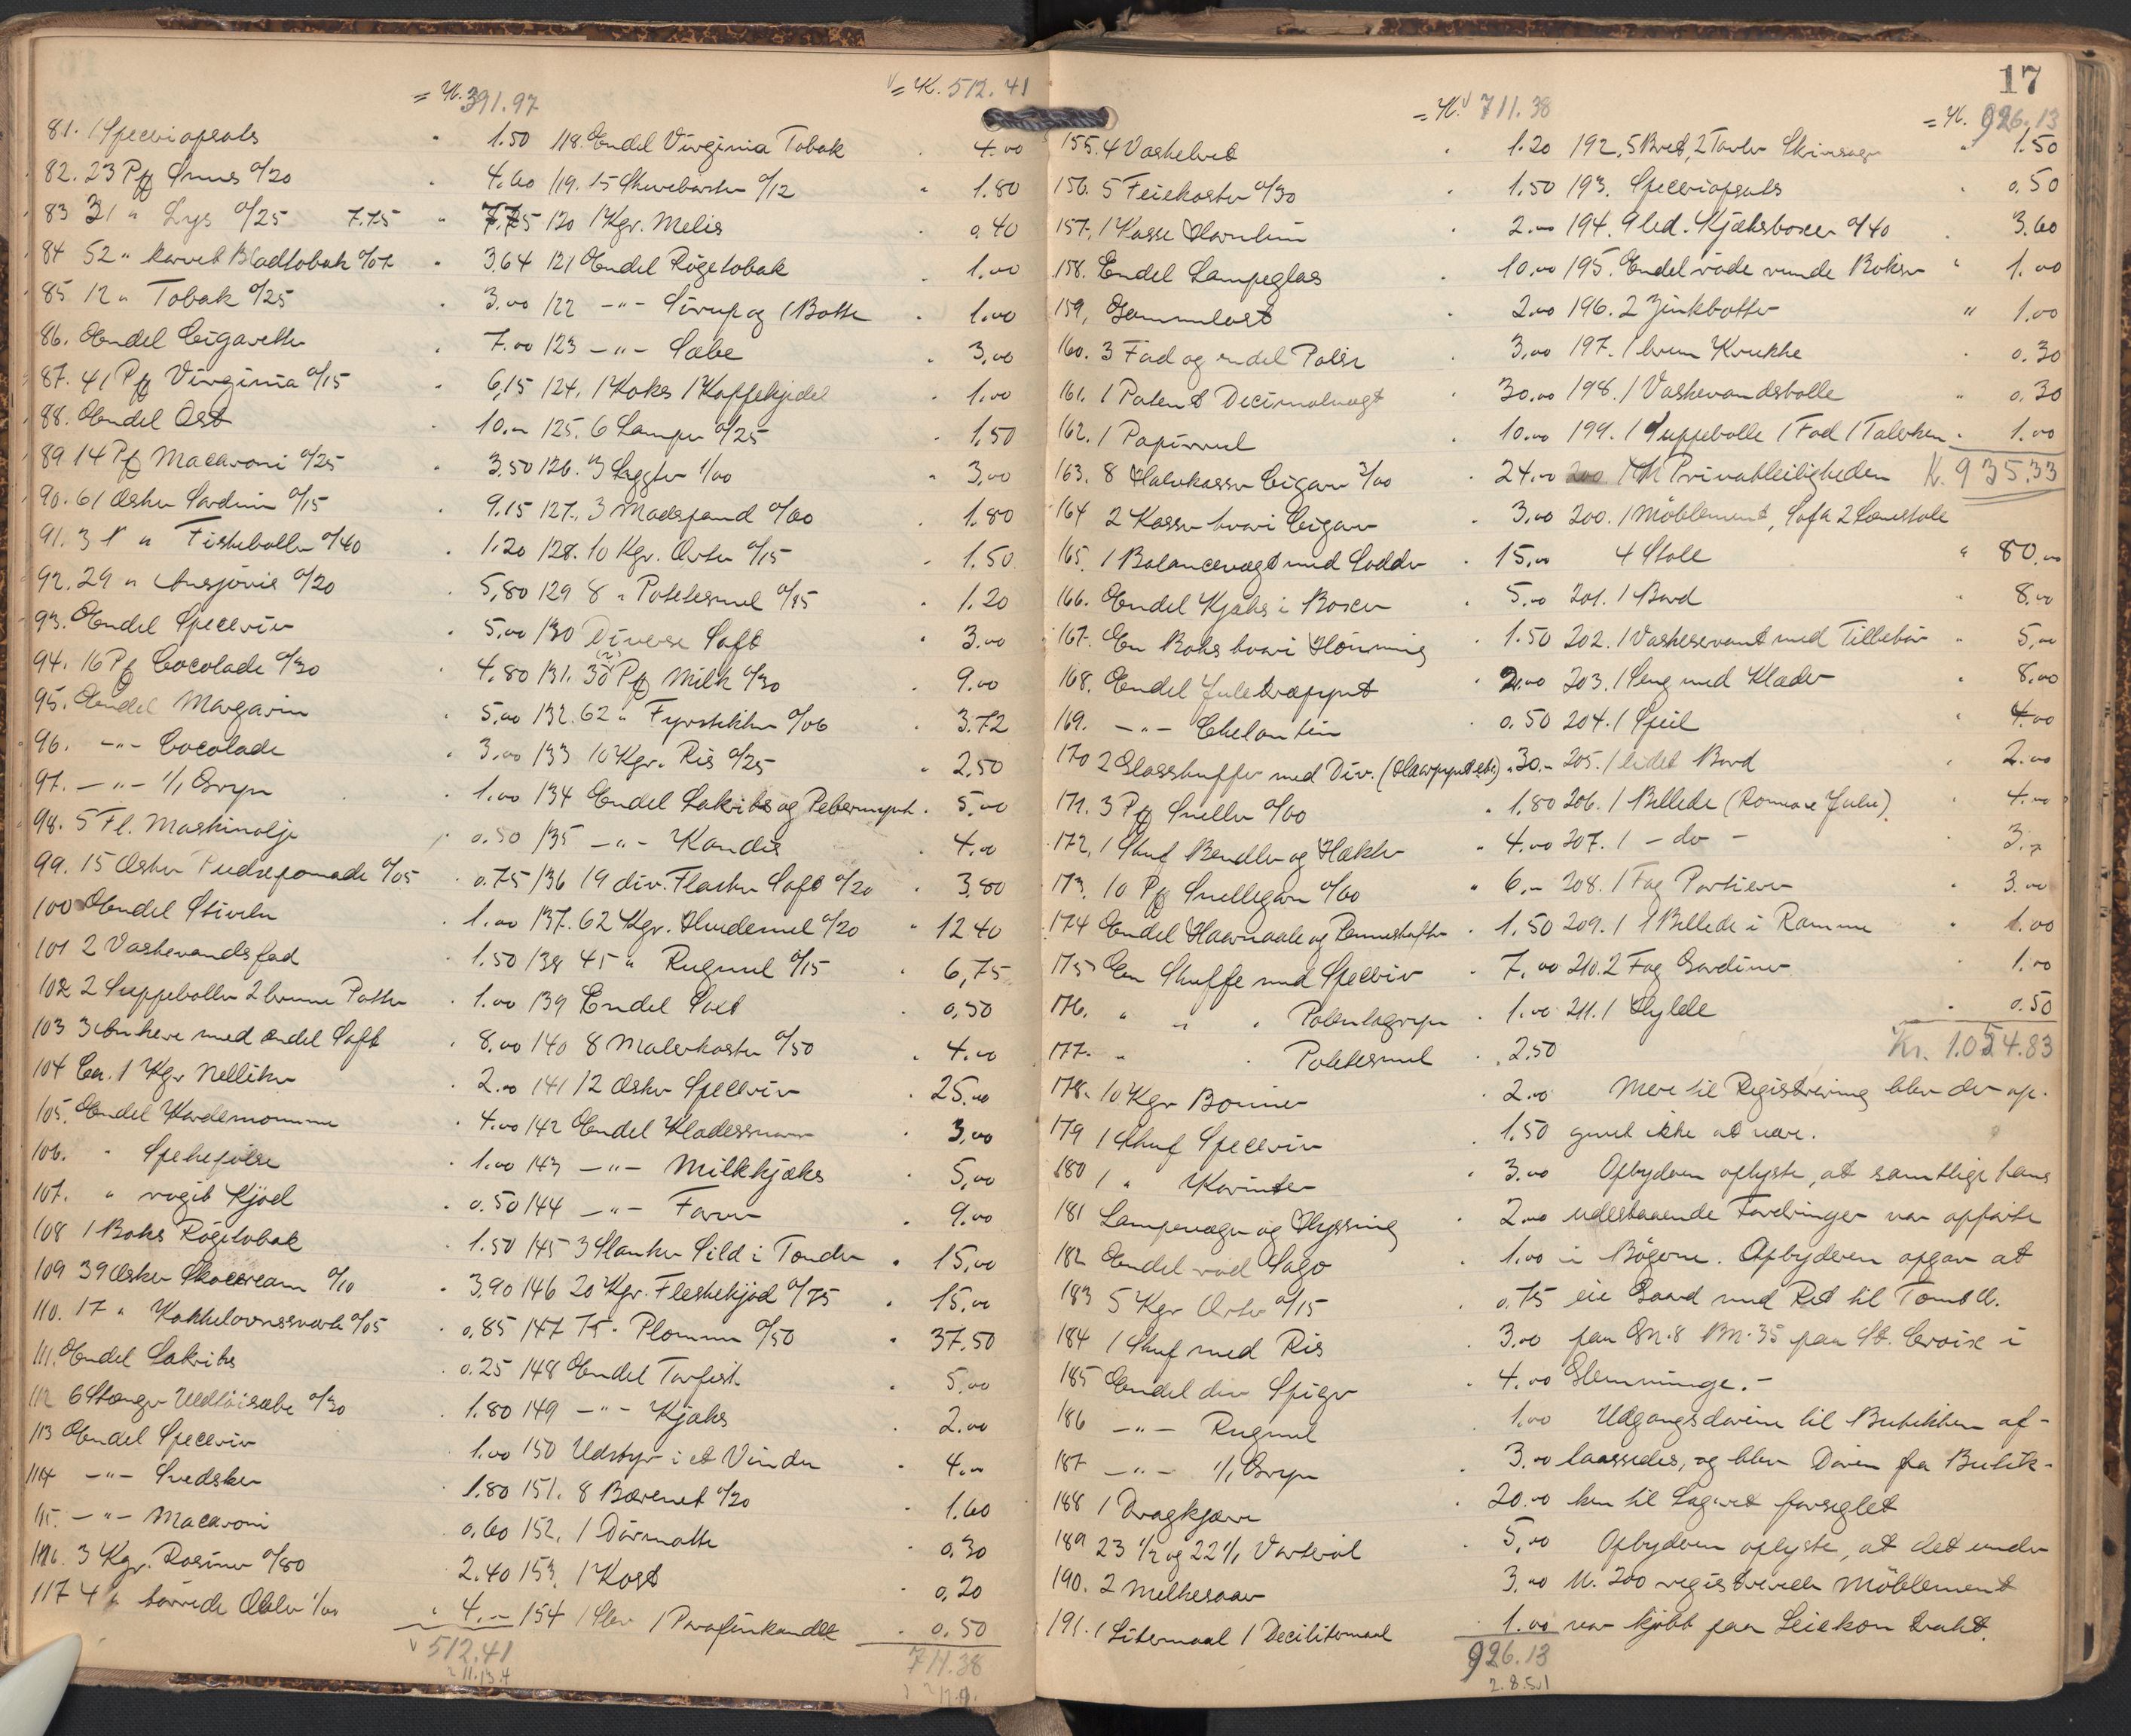 = K. 391.97
81. 1 Specerioprats " 1.50
82. 23 Pk Snus a/20 " 4.60
83 31 " Lys a/25 7.75 " 7.75
84 52 " karvet Bladtobak a/07 " 3.64
85. 12 " Tobak a/25 " 3.00
86. Endel Cigaretter " 7.00
87. 41 Pk Virginia a/15 " 6.15
88. Endel Ost " 10.-
89 14 Pk Macaroni a/25 " 3.50
90. 61 Æsker Sardiner a/15 " 9.15
91. 3 " Fiskeboller a/40 " 1.20
92. 29 " Ansjovis a/20 " 5.80
93. Endel Specerier " 5.00
94. 16 Pk Cocolade a/30 " 4.80
95. Endel Margarin " 5.00
96. -"- Cocolade " 3.00
97. -"- 1/1 Gryn " 1.00
98. 5 Fl. Maskinolje " 0.50
99. 15 Æsker Pudsepomade a/05 " 0.75
100 Endel Stivelse " 1.00
101 2 Vaskevandsfad " 1.50
102 2 Suppeboller 2 brune Potter " 1.00
103 3 Ankere med endel Saft " 8.00
104 Ca. 1 Kgr Nelliker " 2.00
105. Endel Kardemomme " 4.00
106. " Spekepølse " 1.00
107. " røgt Kjød " 0.50
108 1 Boks Røgetobak " 1.50
109 39 Æsker Skocream a/10 " 3.90
110. 17 " Kakkelovnssværte a/05 " 0.85
111. Endel Lakrits " 0.25
112 6 Stænger Uldtøisæbe a/30 " 1.80
113 Endel Specerier " 1.00
114 -"- Svedsker " 1.80
115. -"- Macaroni " 0.60
116. 3 Kgr. Rosiner a/80 " 2.40
117 4 " tørrede Æbler 1/00 " 4.-
512.41
2 11.13.4
= K. 512.41
118. Endel Virginia Tobak " 4.00
119. 15 Skurebørster a/12 " 1.80
120 1 Kgr. Melis " 0.40
121 Endel Røgetobak " 1.00
122 -"- Sirup og 1 Bøtte " 1.00
123 -"- Sæbe " 3.00
124. 1 Koks 1 Kaffekjedel " 1.00
125. 6 Lamper a/25 " 1.50
126. 3 Lygter 1/00 " 3.00
127. 3 Madspand a/60 " 1.80
128. 10 Kgr. Erter a/15 " 1.50
129 8 " Potetesmel a/15 " 1.20
130 Diverse Saft " 3.00
131. 30 Pk Milk a/30 " 9.00
132. 62 " Fyrstikker a/06 " 3.72
133 10 Kgr. Ris a/25 " 2.50
134 Endel Lakrits og Pebermynt " 5.00
135 -"- Kandis " 4.00
136 19 div. Flasker Saft a/20 " 3.80
137. 62 Kgr. Hvedemel a/20 " 12.40
138 45 " Rugmel a/15 " 6.75
139 Endel Salt " 0.50
140 8 Malerkoster a/50 " 4.00
141 12 Æsker Specerier " 25.00
142 Endel Kladessnorer " 3.00
143 -"- Milkkjæks " 5.00
144 -"- Farver " 9.00
145 3 Slanker Sild i Tønder " 15.00
146 20 Kgr. Fleskekjød a/75 " 15.00
147 75 " Plommer a/50 " 37.50
148 Endel Tørfisk " 5.00
149 -"- Kjæks " 2.00
150 Udstyr i et Vindu " 4.00
151. 8 Bærenet a/20 " 1.60
152. 1 Dørmatte " 0.30
153. 1 Kost " 0.20
154 1 Slev 1 Parafinkande " 0.50
711.38
17
= K. 711.38
155. 4 Vaskebret " 1.20
156. 5 Feiekoster a/30 " 1.50
157. 1 Kasse Harulim " 2.00
158. Endel Lampeglas " 10.00
159. Gammelost " 2.00
160. 3 Fad og endel Pølse " 3.00
161. 1 Patent Decimalvægt " 30.00
162. 1 Papirrul " 10.00
163. 8 Halvkasser Cigarer 3/00 " 24.00
164 2 Kasser hvori Cigarer " 3.00
165. 1 Balancevægt med Lodder " 15.00
166. Endel Kjæks i Boxer " 5.00
167. En Boks hvori Honning " 1.50
168. Endel Juletræpynt " 2.00
169. -"- Chelantin " 0.50
170 2 Glasskuffer med Div. (Haarpynt etc.) " 30.-
171. 3 Pk Sneller a/60 " 1.80
172. 1 Skuf Bendler og Hækter " 4.00
173. 10 Pk Snellegarn a/60 " 6.-
174 Endel Haarnaale og Penneskafter " 1.50
175 En Skuffe med Specerier " 7.00
176. " " " Potetesgryn " 1.00
177. " " Potetesmel " 2.50
178. 10 Kgr Bønner " 2.00
179 1 Skuf Specerier " 1.50
180 1 " Korinter " 3.00
181 Lampevæger og Hyssing " 2.00
182 Endel rød Sago " 1.00
183 5 Kgr Erter a/15 " 0.75
184 1 Skuf med Ris " 3.00
185 Endel div Spiger " 4.00
186 -"- Rugmel " 1.00
187 -"- 1/1 Gryn " 3.00
188 1 Dragkjærre " 20.00
189 23 1/2 og 22 1/1 Vørterøl " 5.00
190. 2 Melkespaner " 3.00
191. 1 Litermaal 1 Decilitermaal " 1.00
926.13
2.8.5.1
= K. 926.13
192. 5 Bret, 2 Tavler Skrivesager " 1.50
193. Specerioprats " 0.50
194. 9 led. Kjæksboxer a/40 " 3.60
195. Endel røde runde Bokser " 1.00
196. 2 Zinkbøtter " 1.00
197. 1 brun Krukke " 0.30
198. 1 Vaskevandsbolle " 0.30
199. 1 Suppebolle 1 Fad 1 Talerken " 1.00
I Privatleiligheden K. 935.33
200. 1 Møblement, Sofa 2 Lænestole
4 Stole " 80.00
201. 1 Bord " 8.00
202. 1 Vaskeservant med Tilbehør " 5.00
203. 1 Seng med Klæder " 8.00
204. 1 Speil " 4.00
205. 1 lidet Bord " 2.00
206. 1 Billede (Romeo & Julie) " 4.00
207. 1 - do - " 3.-
208. 1 Fag Portierer " 3.00
209. 1 Billede i Ramme " 1.00
210. 2 Fag Gardiner " 1.00
211. 1 Hylde " 0.50
Kr. 1.054.83
Mere til Registrering blev der op-
givet ikke at være.
Opbyderen oplyste, at samtlige hans
udestaaende Fordringer var opførte
i Bøgerne. Opbyderen opgav at
eie Gaard med Ret til Tomt
paa Gn. 8 Bn. 35 paa St. Croix i
Glemminge.-
Udgangsdøren til Butikken af-
laasedes, og blev Døren fra Butik-
ken til Lageret forseglet
Opbyderen oplyste, at det under
N. 200 registrerede Møblement
var kjøbt paa Leiekontrakt.